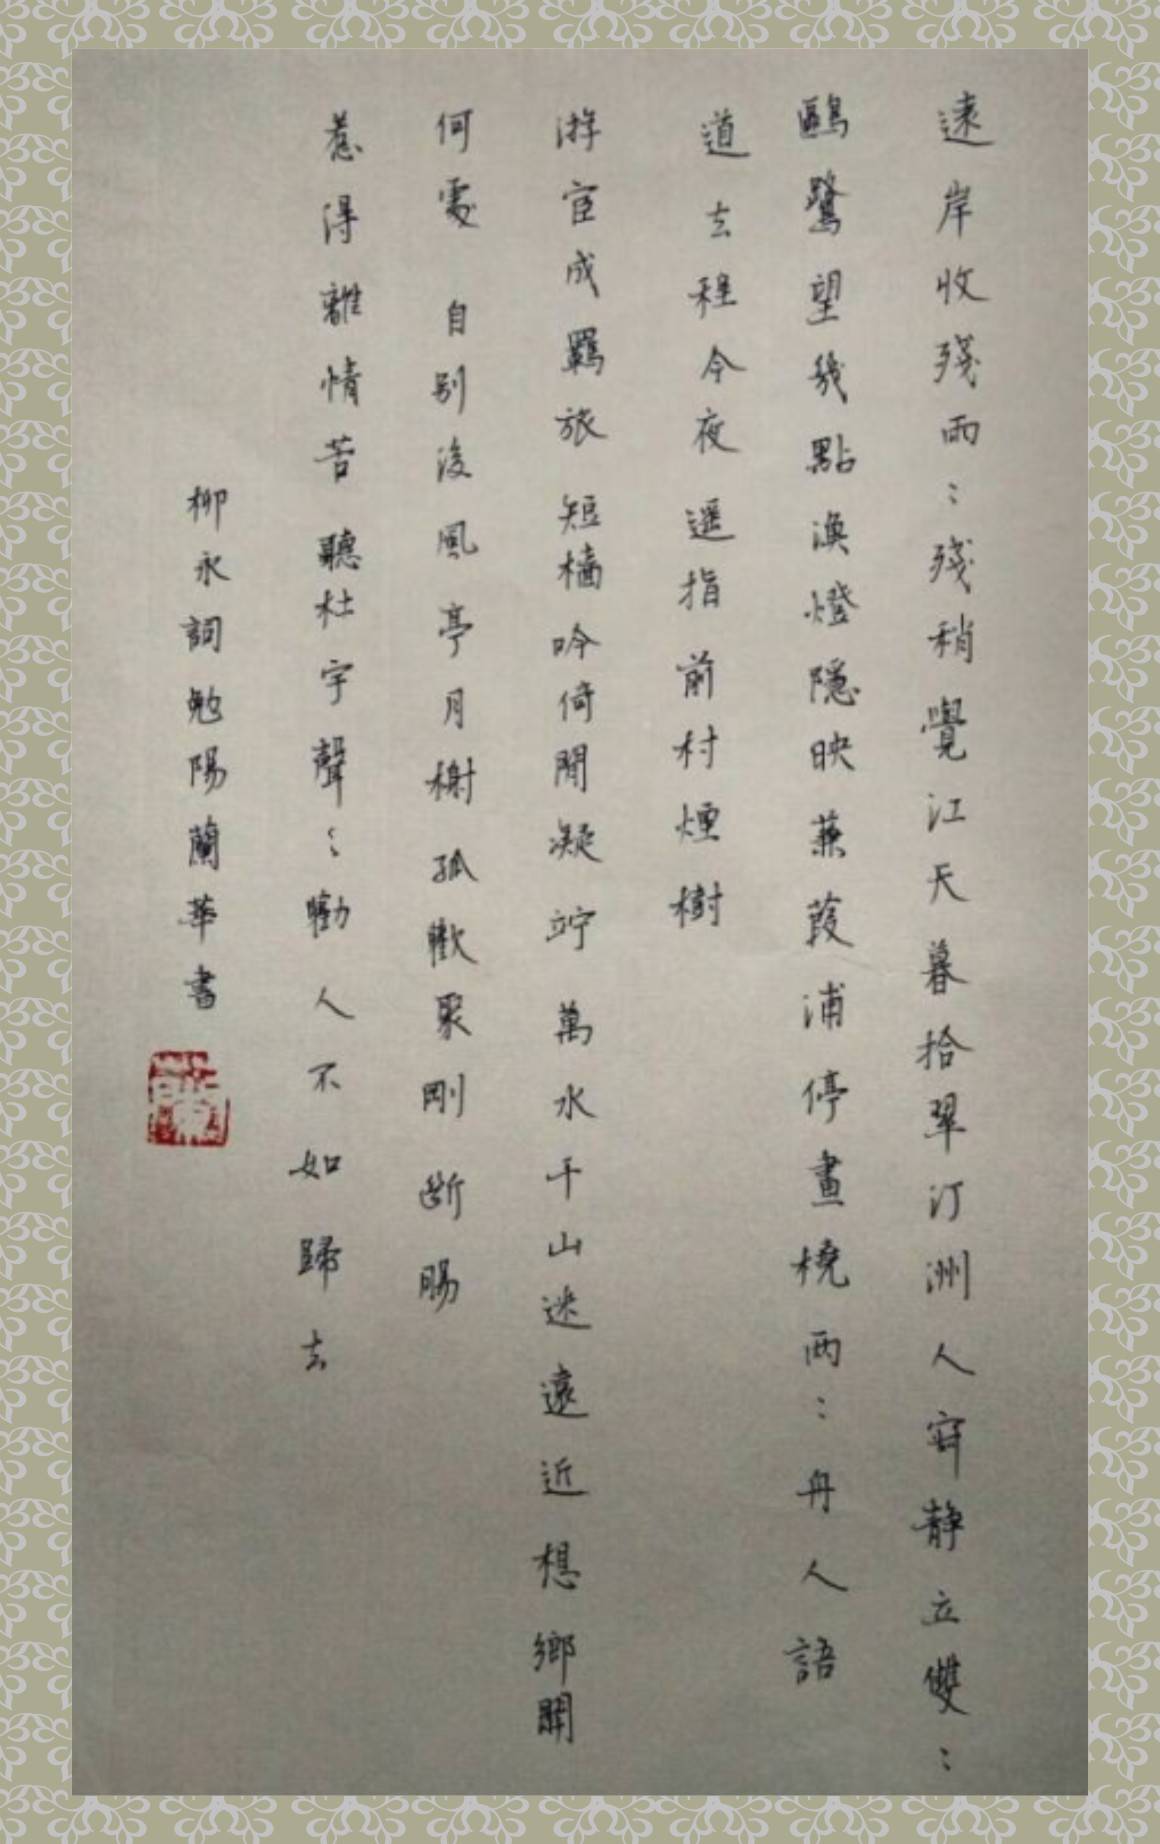 遠岸收殘雨：殘稍覺江天暮拾翠汀洲人寂靜立雙：
鷗鷺望幾點漁燈隱映蒹葭浦停畫橈兩：舟人語
道去程今夜遥指前村煙樹
游宦成羈旅短檣吟倚閒凝竚萬水千山迷遠近想鄉關
何處自别後風亭月榭孤歡聚剛斷腸
惹得離情苦聽杜宇聲：勸人不如歸去
柳永詞勉陽蘭華書